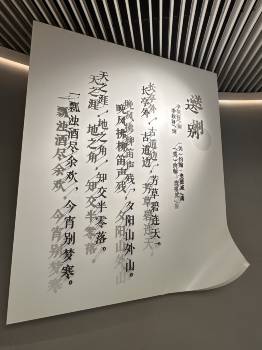 送别
长亭外，古道边，芳草碧连天。
晚风拂柳笛声残，夕阳山外山。
天之涯，地之角，知交半零落。
一瓢浊酒尽余欢，今宵别梦寒。